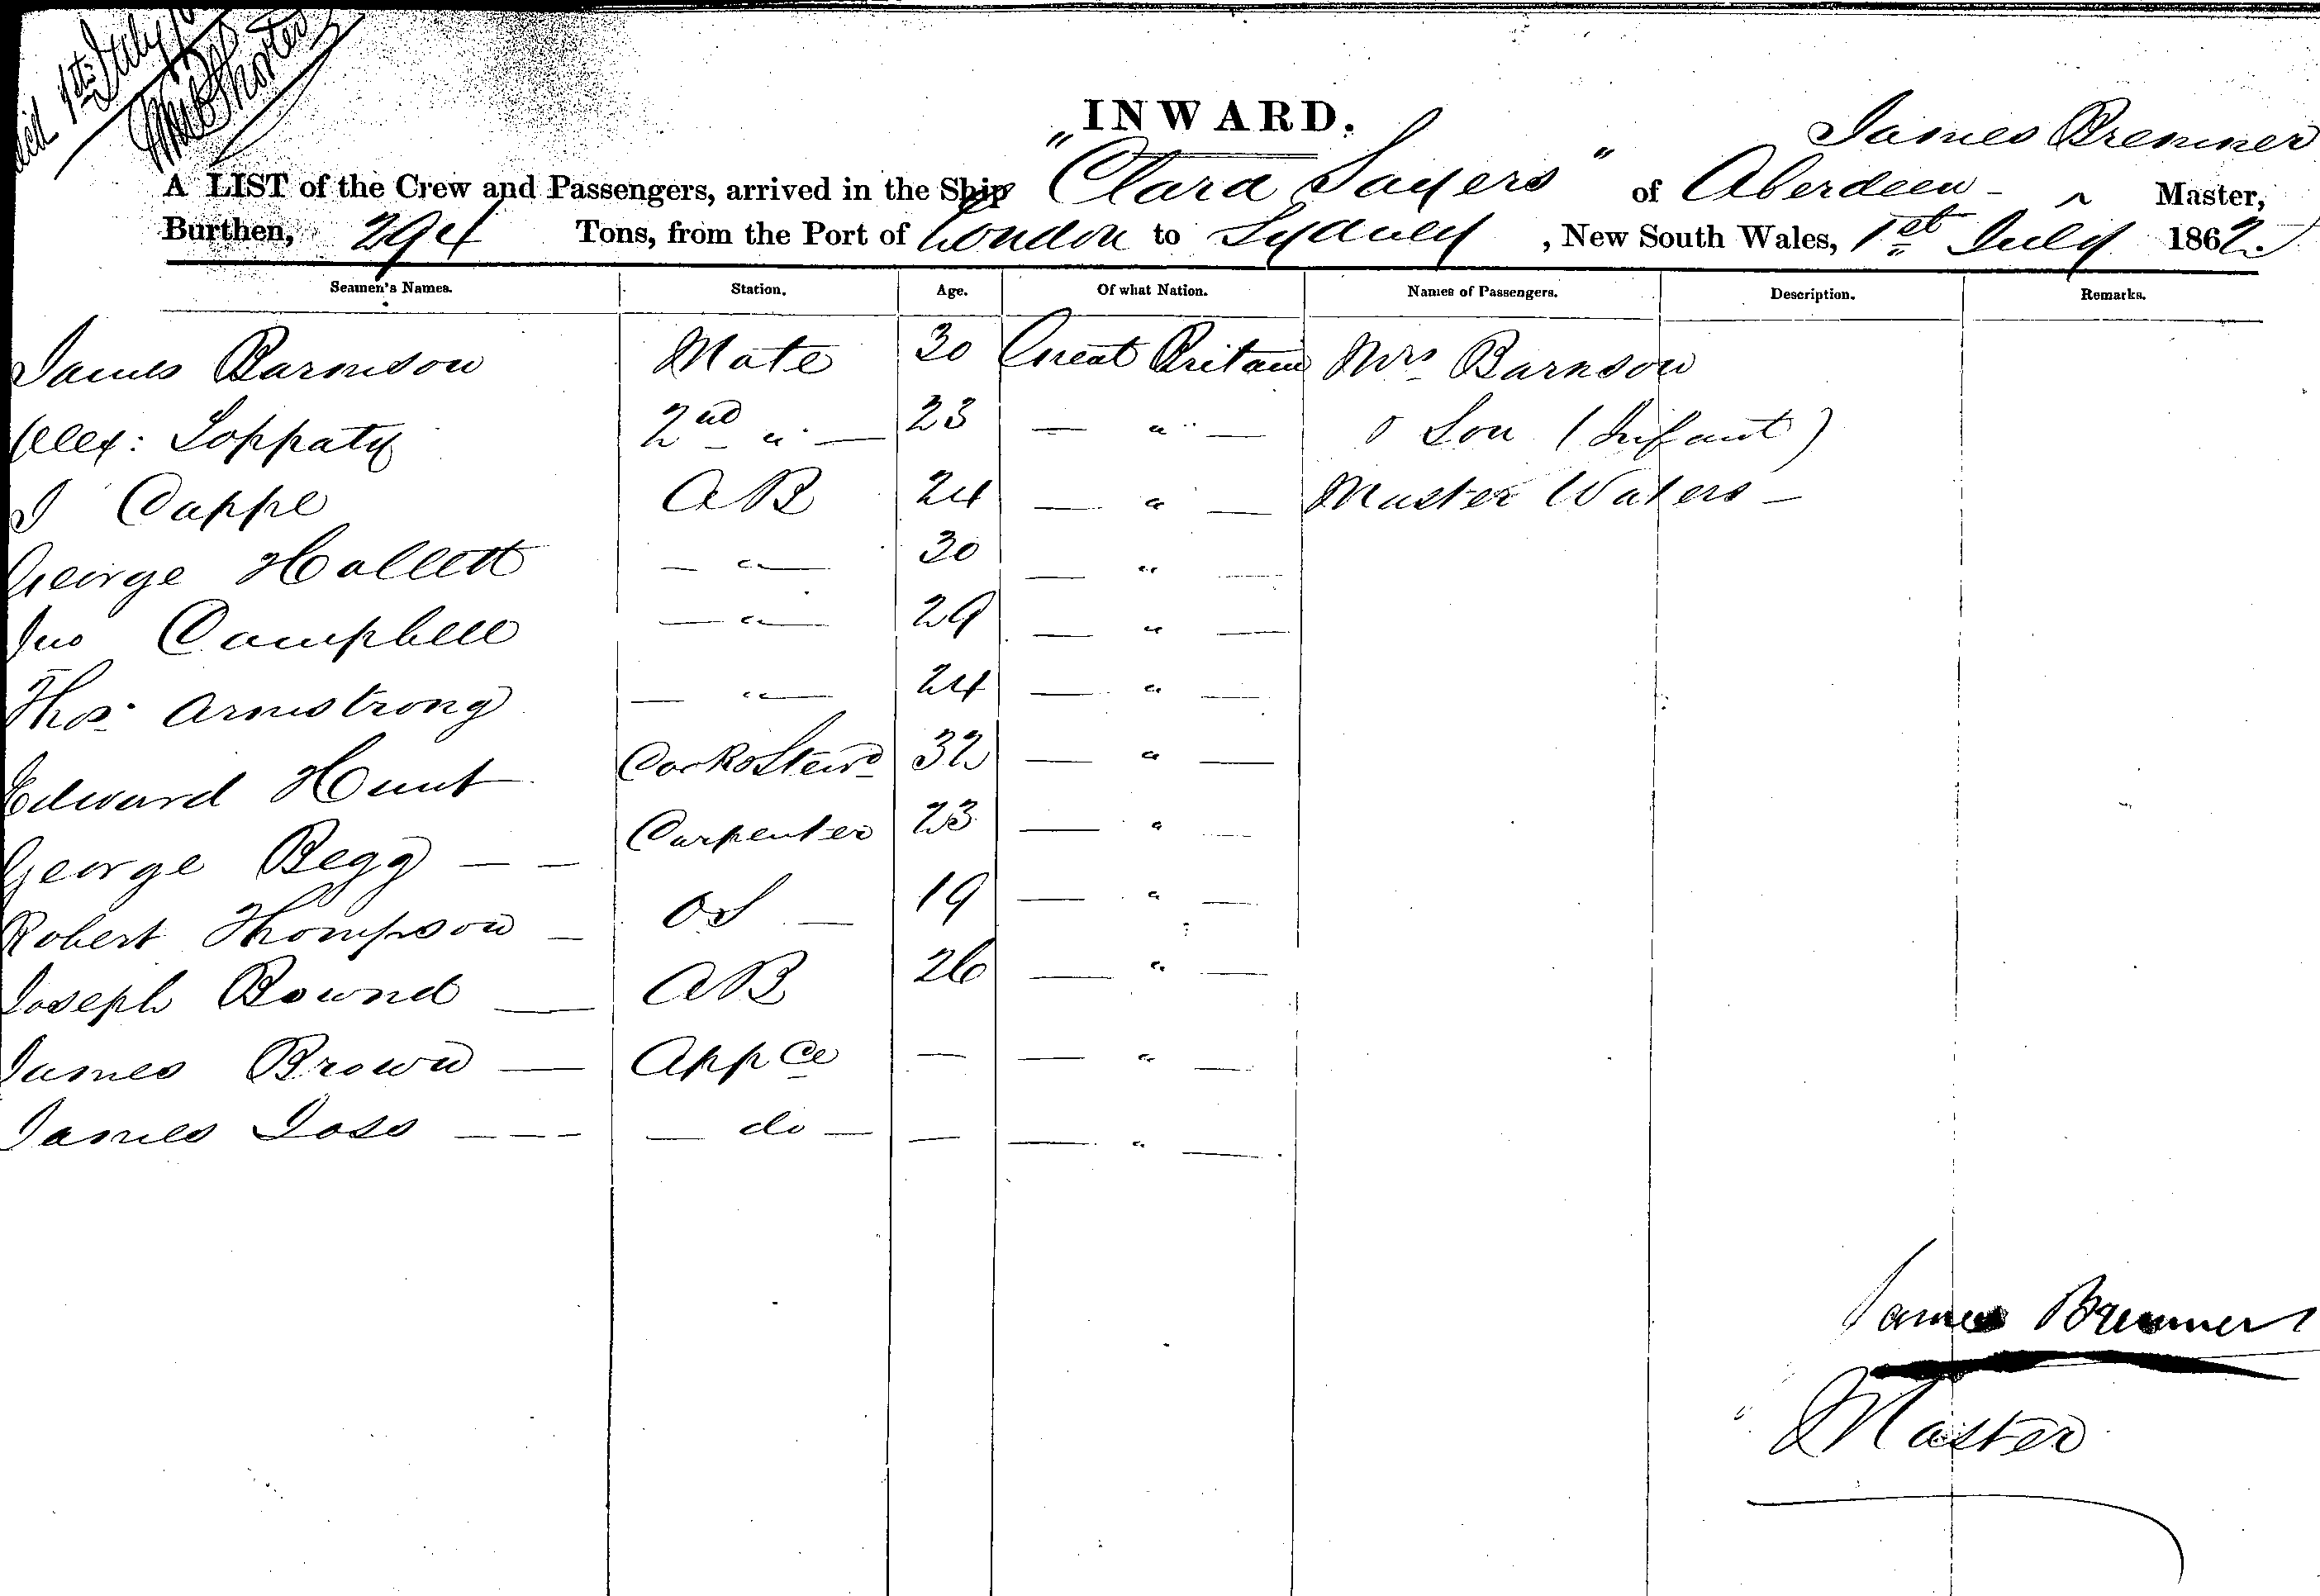 1st July
INWARD.
James Bremner
A LIST of the Crew and Passengers, arrived in the Ship "Clara Sayers" of Aberdeen - ^ Master,
Burthen, 294 Tons, from the Port of London to Sydney , New South Wales, 1st July 1862
Seamen's Names. Station. Age. Of what Nation. Names of Passengers. Description. Remarks.
James Barnson Mate 30 Great Britain Mrs Barnson
Alex: Loppaty 2nd " — 23 — " — Son (Infant)
J Cappe AB 24 — " — Master Waters —
George Hallett — " — 30 — " —
Jno Campbell — " — 29 — " —
Thos. Armstrong — " — 24 — " —
Edward Hunt Cook & Stewd 32 — " —
George Begg — — Carpenter 23 — " —
Robert Thompson — OS — 19 — " —
Joseph Bound — AB 26 — " —
James Brown — Appce — — " —
James Joss — — — — do — — — " —
James Bremner
Master